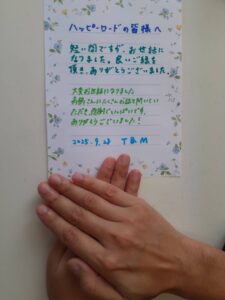 ハッピーロードの皆様へ
短い間ですが、お世話に
なりました。良いご縁を
頂き、ありがとうございました
大変お世話になりました
たくさんお話を聞いてい
ただき、感謝でいっぱいです。
ありがとうございました!
2025.9.28 T&M